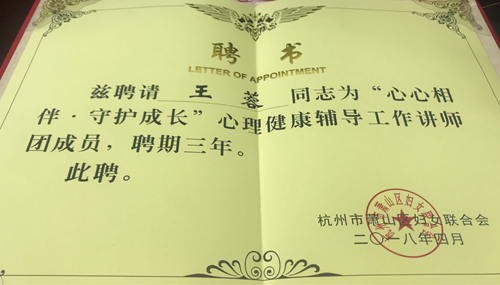 聘书
LETTER OF APPOINTMENT
兹聘请 王蓉 同志为“心心相
伴·守护成长”心理健康辅导工作讲师
团成员，聘期三年。
此聘。
杭州市萧山区妇女联合会
二〇一八年四月